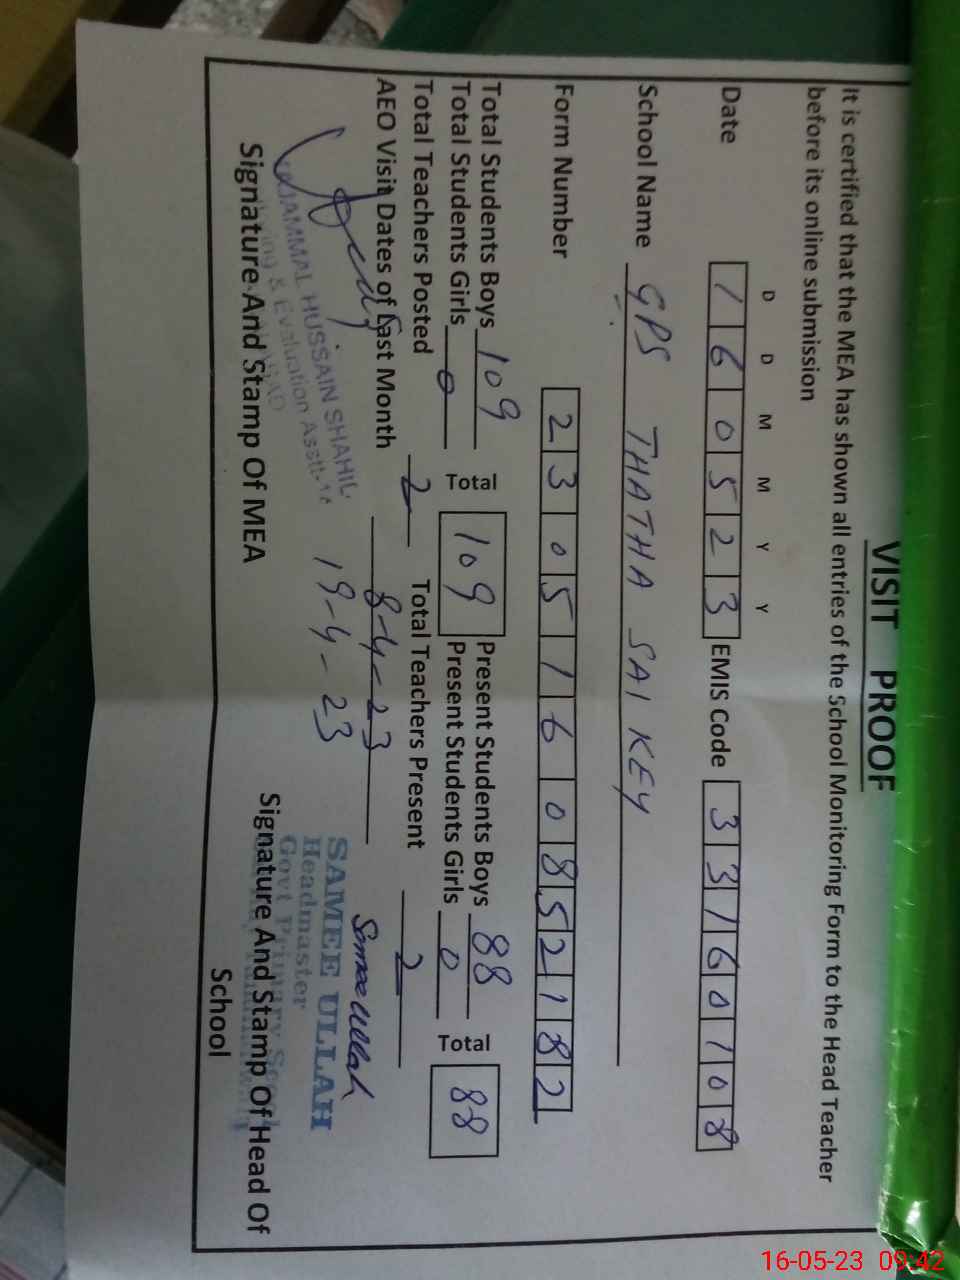 VISIT PROOF
It is certified that the MEA has shown all entries of the School Monitoring Form to the Head Teacher
before its online submission
D D M M Y Y
Date 1 6 0 5 2 3 EMIS Code 3 3 1 6 0 1 0 8
School Name GPS THATHA SAI KEY
Form Number 2 3 0 5 1 6 0 8 5 2 1 8 2
Total Students Boys 109 Present Students Boys 88
Total Students Girls 0 Total 109 Present Students Girls 0 Total 88
Total Teachers Posted 2 Total Teachers Present 2
AEO Visit Dates of Last Month 8-4-23
19-4-23
Sameeullah
HUSSAIN SHAHIL
& Evaluation Asstt-16
SAMEE ULLAH
Headmaster
Govt Primary
Signature And Stamp Of MEA
Signature And Stamp Of Head Of
School
16-05-23 09:42